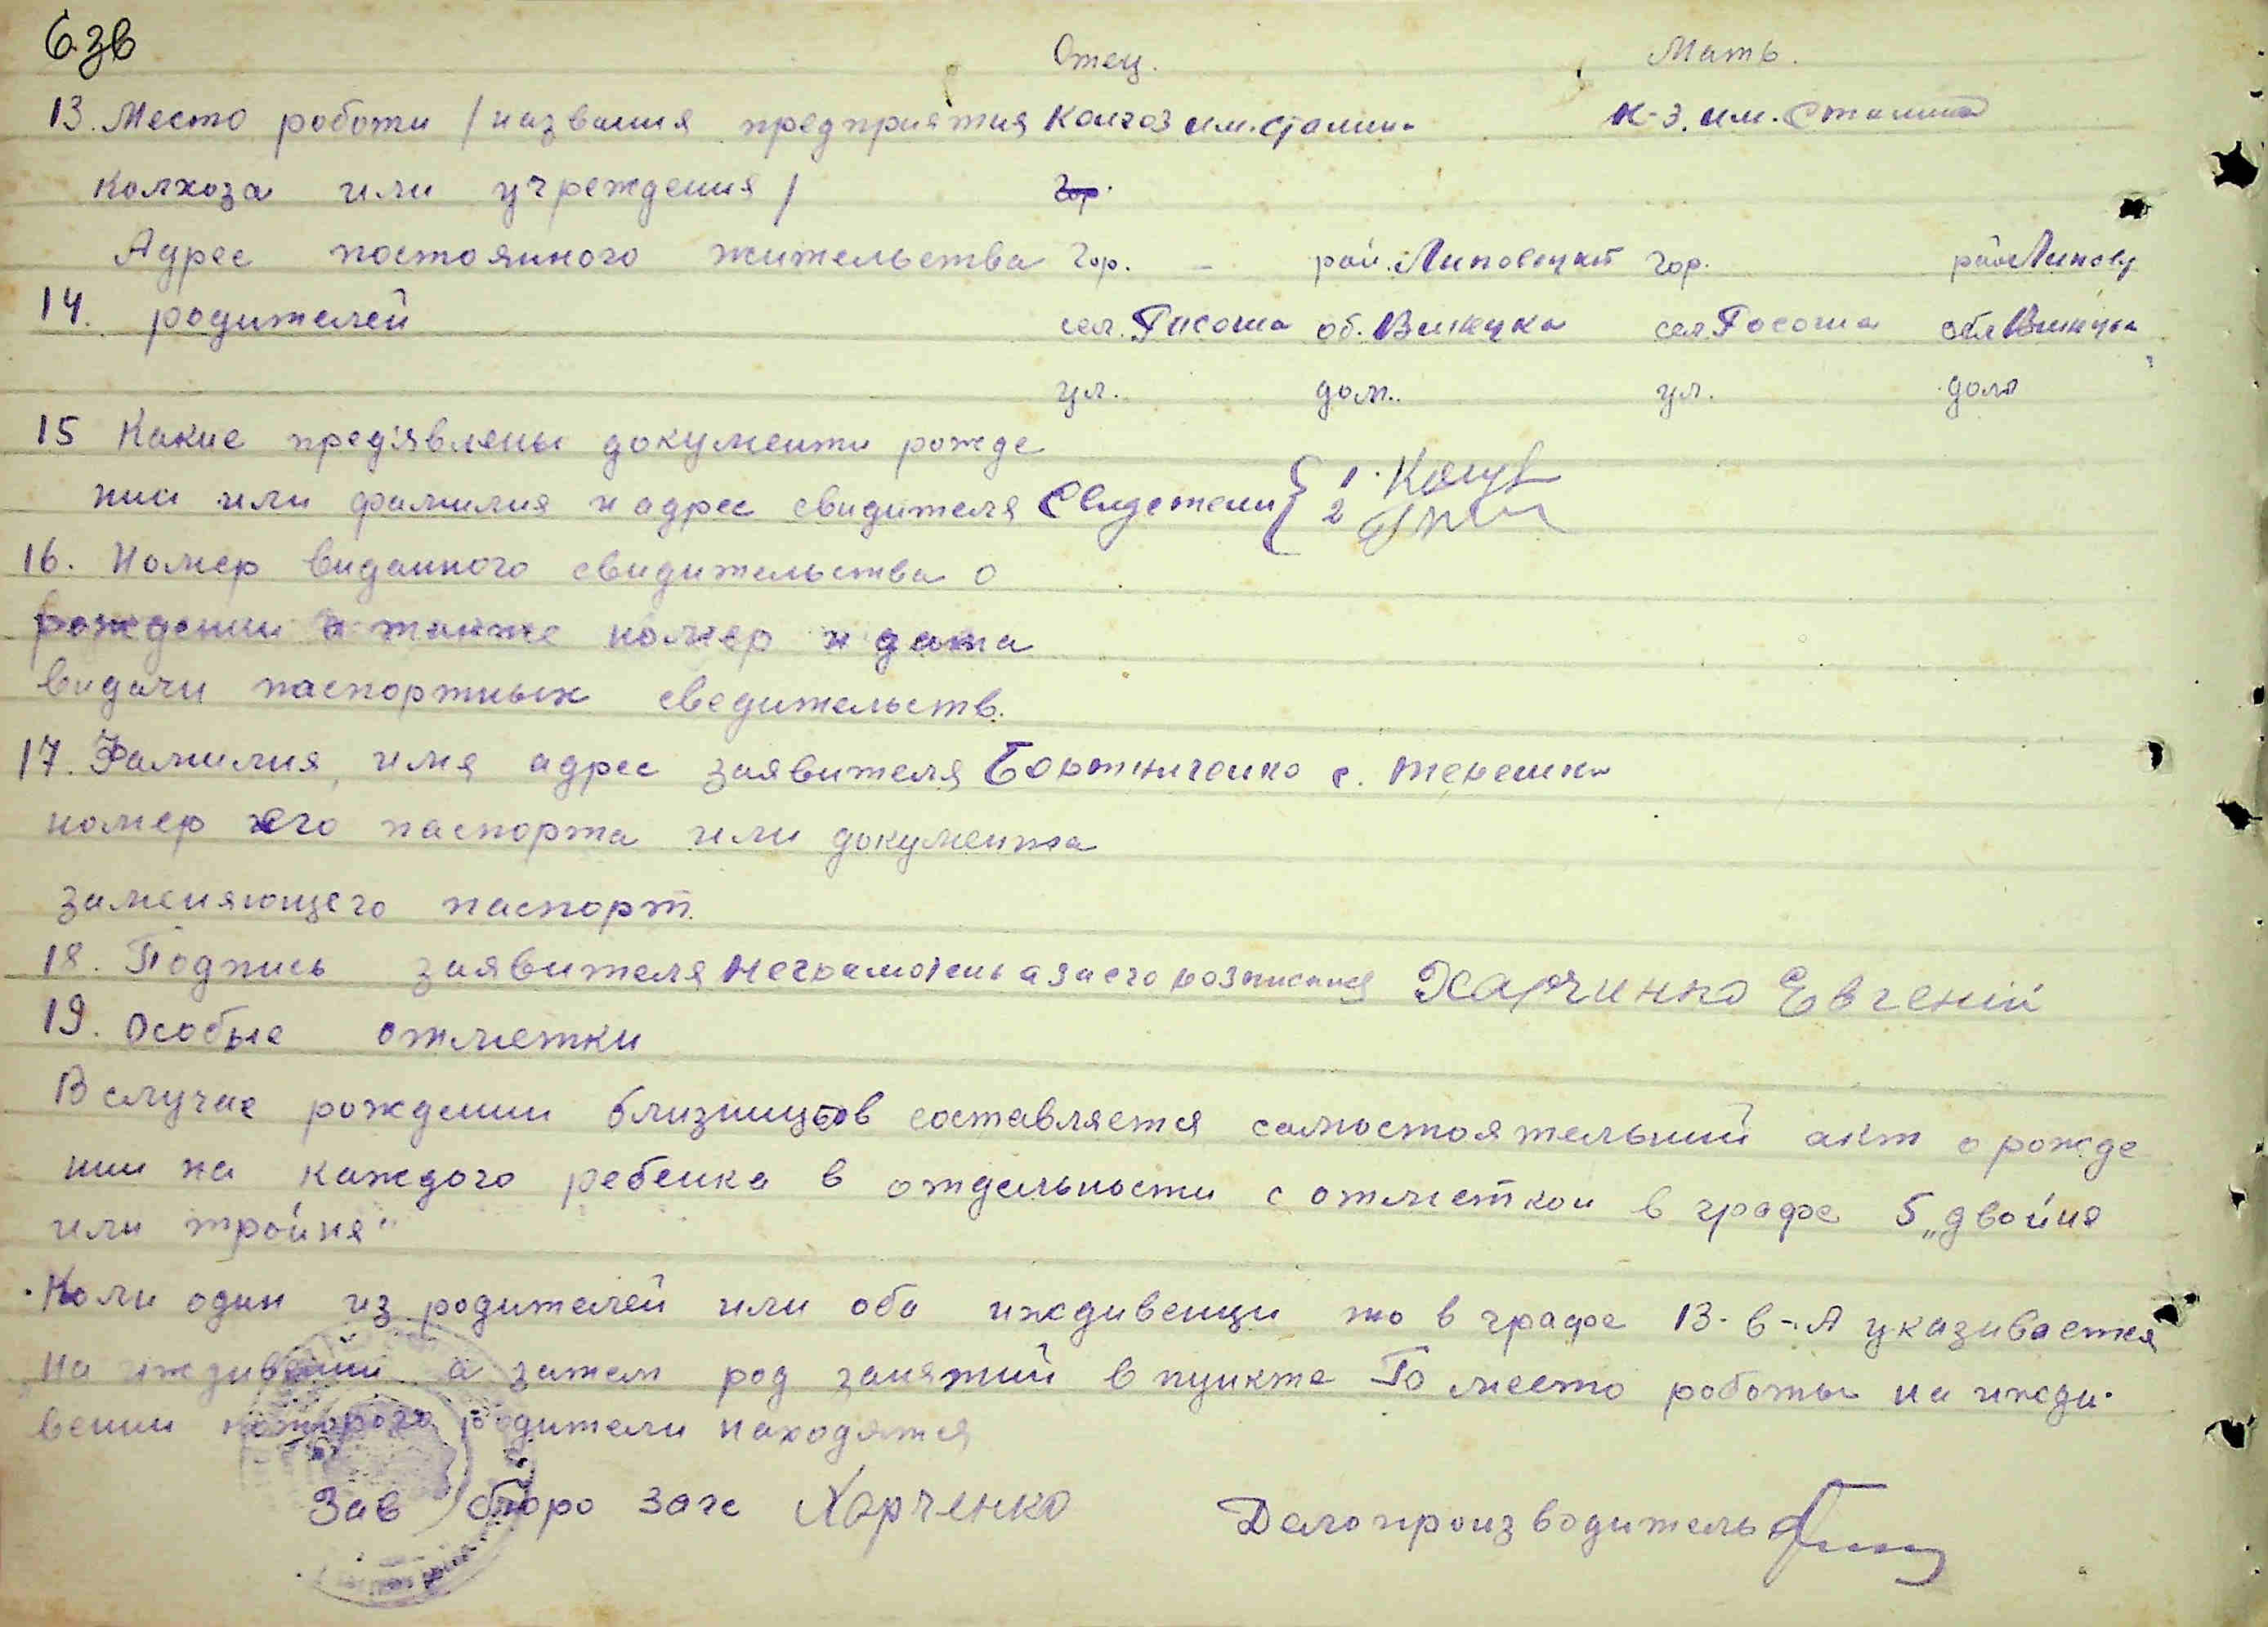 6 зв
Отец. Мать.
13. Место роботи / названия предприятия Колгоз им. Сталина к-з. им. Сталина
колхоза или учреждения / гор.
Адрес постоянного жительства гор. – рай. Липовецкий гор. рай Липовец
14. родителей сел. Росоша об. Виницка сел. Росоша обл Виницка
ул. дом.. ул. дом
15 Какие пред'явлены документи рожде
ниа или фамилия и адрес свидителя Свидетели { 1.
2
16. Номер виданного свидительства о
рождении а также номер и дата
видачи паспортных сведительств.
17. Фамилия, имя адрес заявителя с.
номер его паспорта или документа
заменяющего паспорт.
18. Подпись заявителя неграмотень а за его розписался Харчинко Евгеній
19. Особые отметки
В случае рождении близницов составляется самостоятельний акт о рожде
нии на каждого ребенка в отдельности с отметкой в графе 5 „двойня
или тройня"
Коли один из родителей или оба иждивенци то в графе 13-в-А указивается
„На иждивении а затем род занятий в пункте место роботы на ижди-
вении которого родители находятся
Зав бюро загс Харченко Делопроизводитель